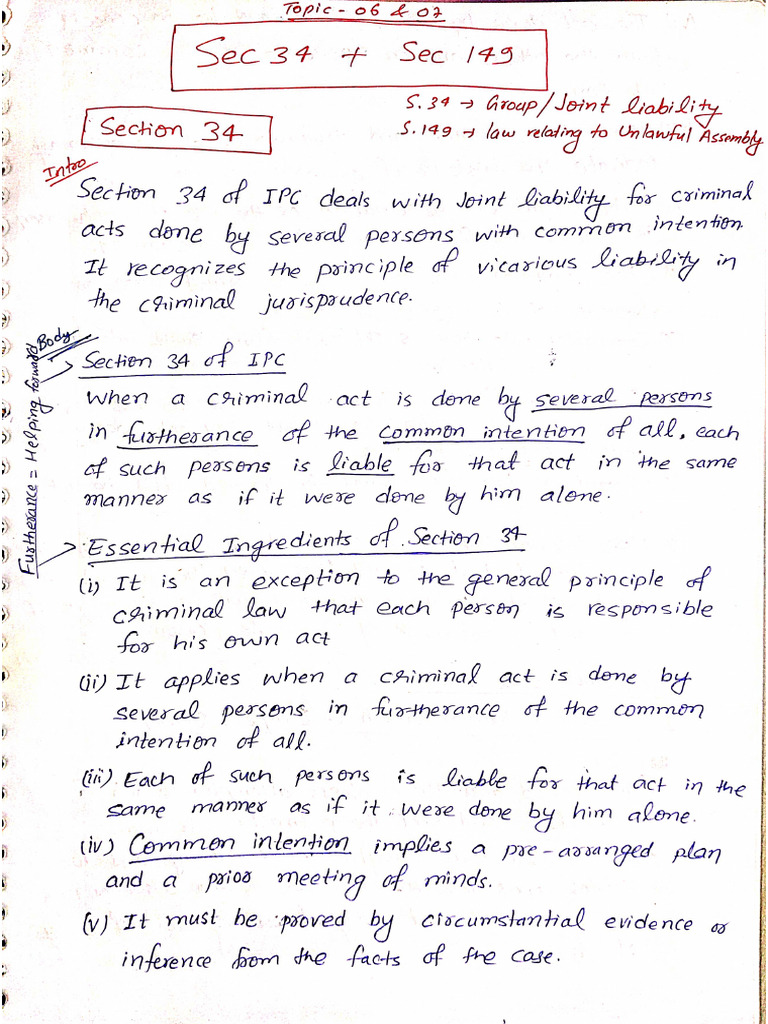 Topic - 06 & 07
Sec 34 + Sec 149
S.34 → Group/Joint liability
S.149 → law relating to Unlawful Assembly
Section 34
Intro
Section 34 of IPC deals with Joint liability for criminal
acts done by several persons with common intention
It recognizes the principle of vicarious liability in
the criminal jurisprudence.
Body
Section 34 of IPC
When a criminal act is done by several persons
in furtherance of the common intention of all, each
of such persons is liable for that act in the same
manner as if it were done by him alone.
Furtherance = Helping forward
Essential Ingredients of Section 34
(i) It is an exception to the general principle of
criminal law that each person is responsible
for his own act
(ii) It applies when a criminal act is done by
several persons in furtherance of the common
intention of all.
(iii) Each of such persons is liable for that act in the
same manner as if it were done by him alone.
(iv) Common intention implies a pre-arranged plan
and a prior meeting of minds.
(v) It must be proved by circumstantial evidence or
inference from the facts of the case.